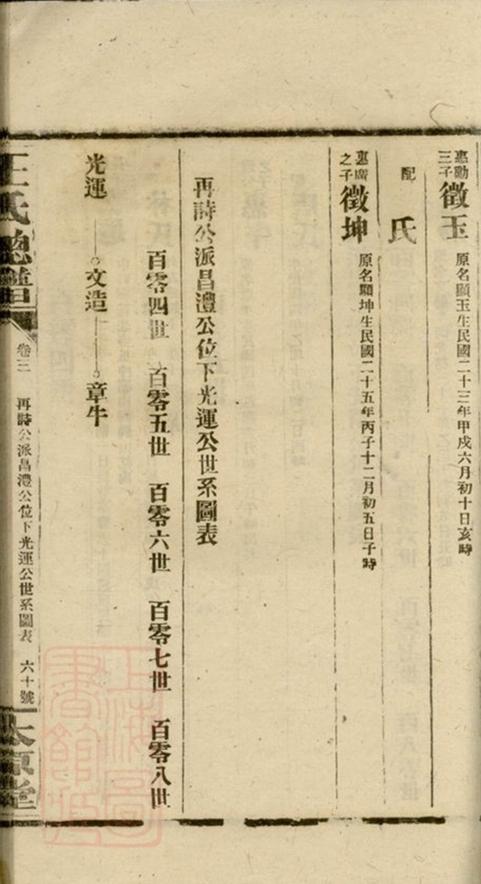 惠勛三子 徵玉 原名顯玉生民國二十三年甲戌六月初十日亥時
配 氏
惠廣之子 徵坤 原名顯坤生民國二十五年丙子十二月初五日子時
再時公派昌澧公位下光運公世系圖表
百零四世 百零五世 百零六世 百零七世 百零八世
光運 文造 章牛
王氏總譜 卷三 再時公派昌澧公位下光運公世系圖表 六十號 太原堂
上海圖書館藏